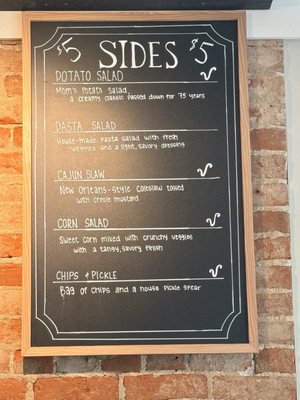 $5 SIDES $5
POTATO SALAD V
Mom's Potato Salad,
a creamy classic passed down for 75 years
PASTA SALAD
House-made pasta salad with fresh
veggies and a light, savory dressing
CAJUN SLAW V
New Orleans-style coleslaw tossed
with creole mustard
CORN SALAD V
Sweet corn mixed with crunchy veggies
with a tangy, savory finish
CHIPS & PICKLE V
Bag of chips and a house pickle spear